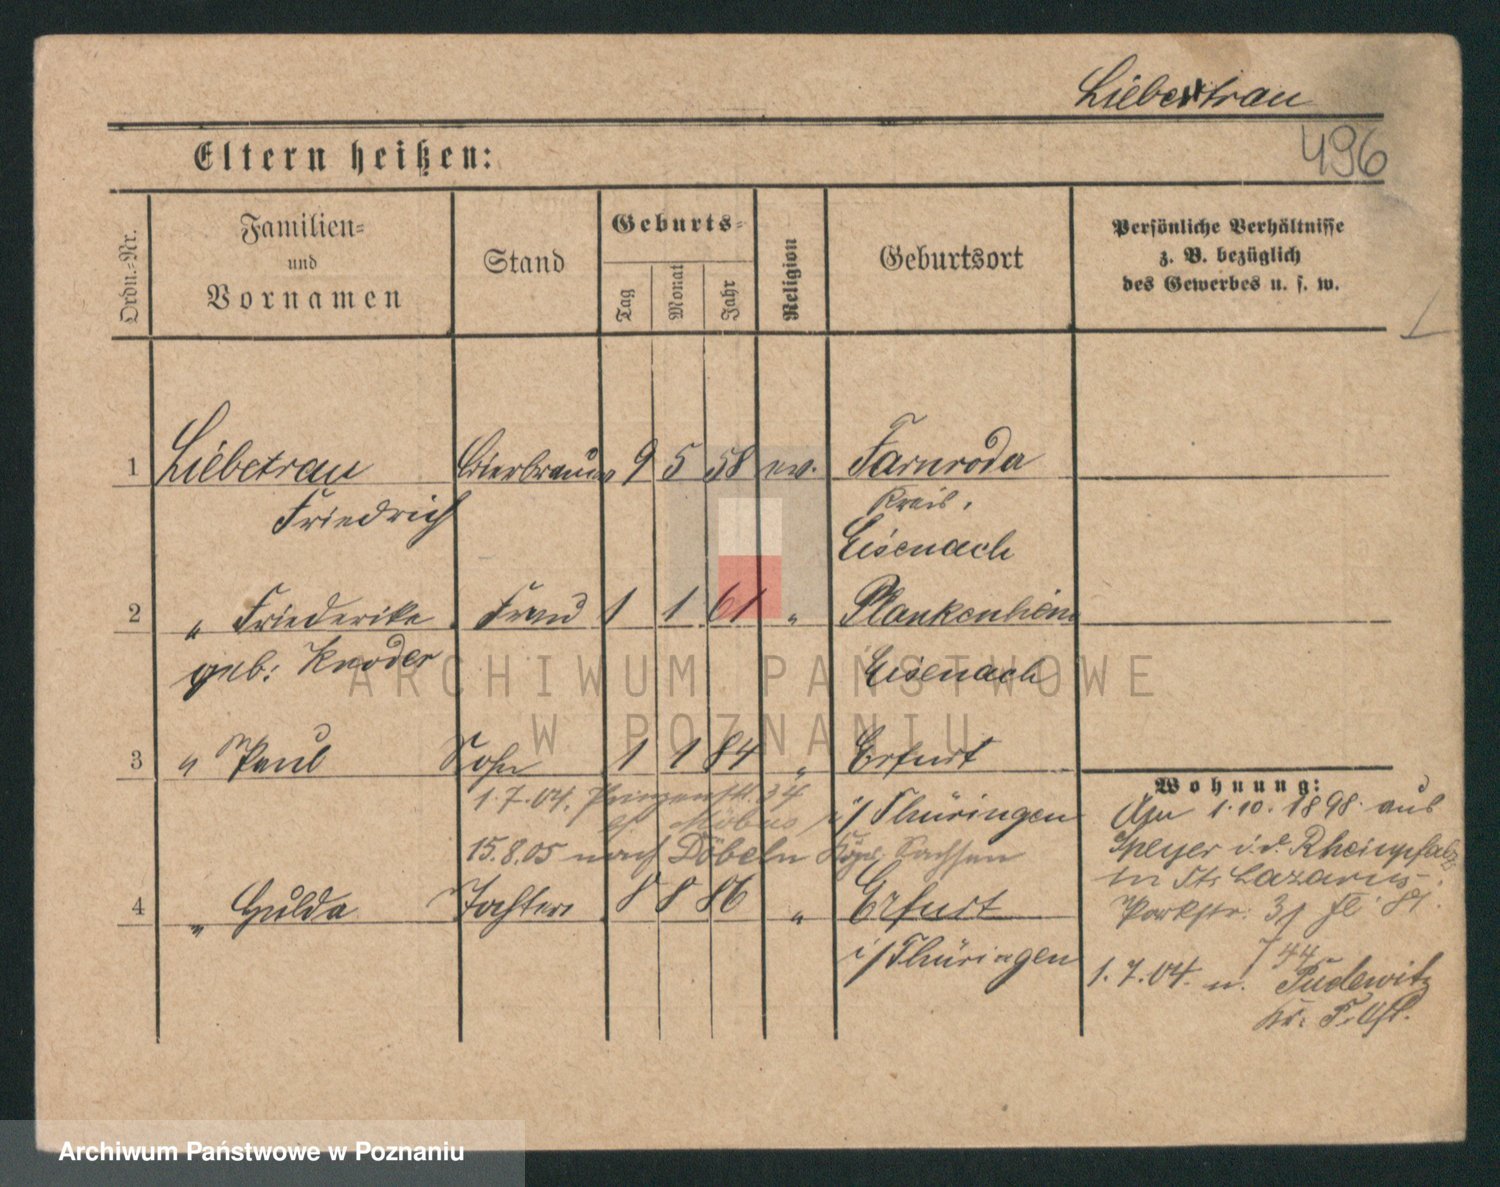 Liebetrau
496
Eltern heißen:
Ordn.-Nr.
Familien-
und
Vornamen
Stand
Geburts-
Tag
Monat
Jahr
Religion
Geburtsort
Persönliche Verhältnisse
z. B. bezüglich
des Gewerbes u. s. w.
1 Liebetrau Bierbrauer 9 5 58 ev. Farnroda
Friedrich Kreis
Eisenach
2 " Friederike Frau 1 1 61 " Plankenhein
geb: Knoder Eisenach
3 " Paul Sohn 1 1 84 " Erfurt
i/Thüringen
1.7.04. 34
15.8.05 nach Döbeln Kgr. Sachsen
4 " Hulda Tochter 8 8 86 " Erfurt
i/Thüringen
Wohnung:
Am 1.10.1898 aus
Speyer i.d. Rheinpfalz
in St. Lazarus
Parkstr. 31
744
1.7.04. n. Pudewitz
Kr.
ARCHIWUM PAŃSTWOWE
W POZNANIU
Archiwum Państwowe w Poznaniu